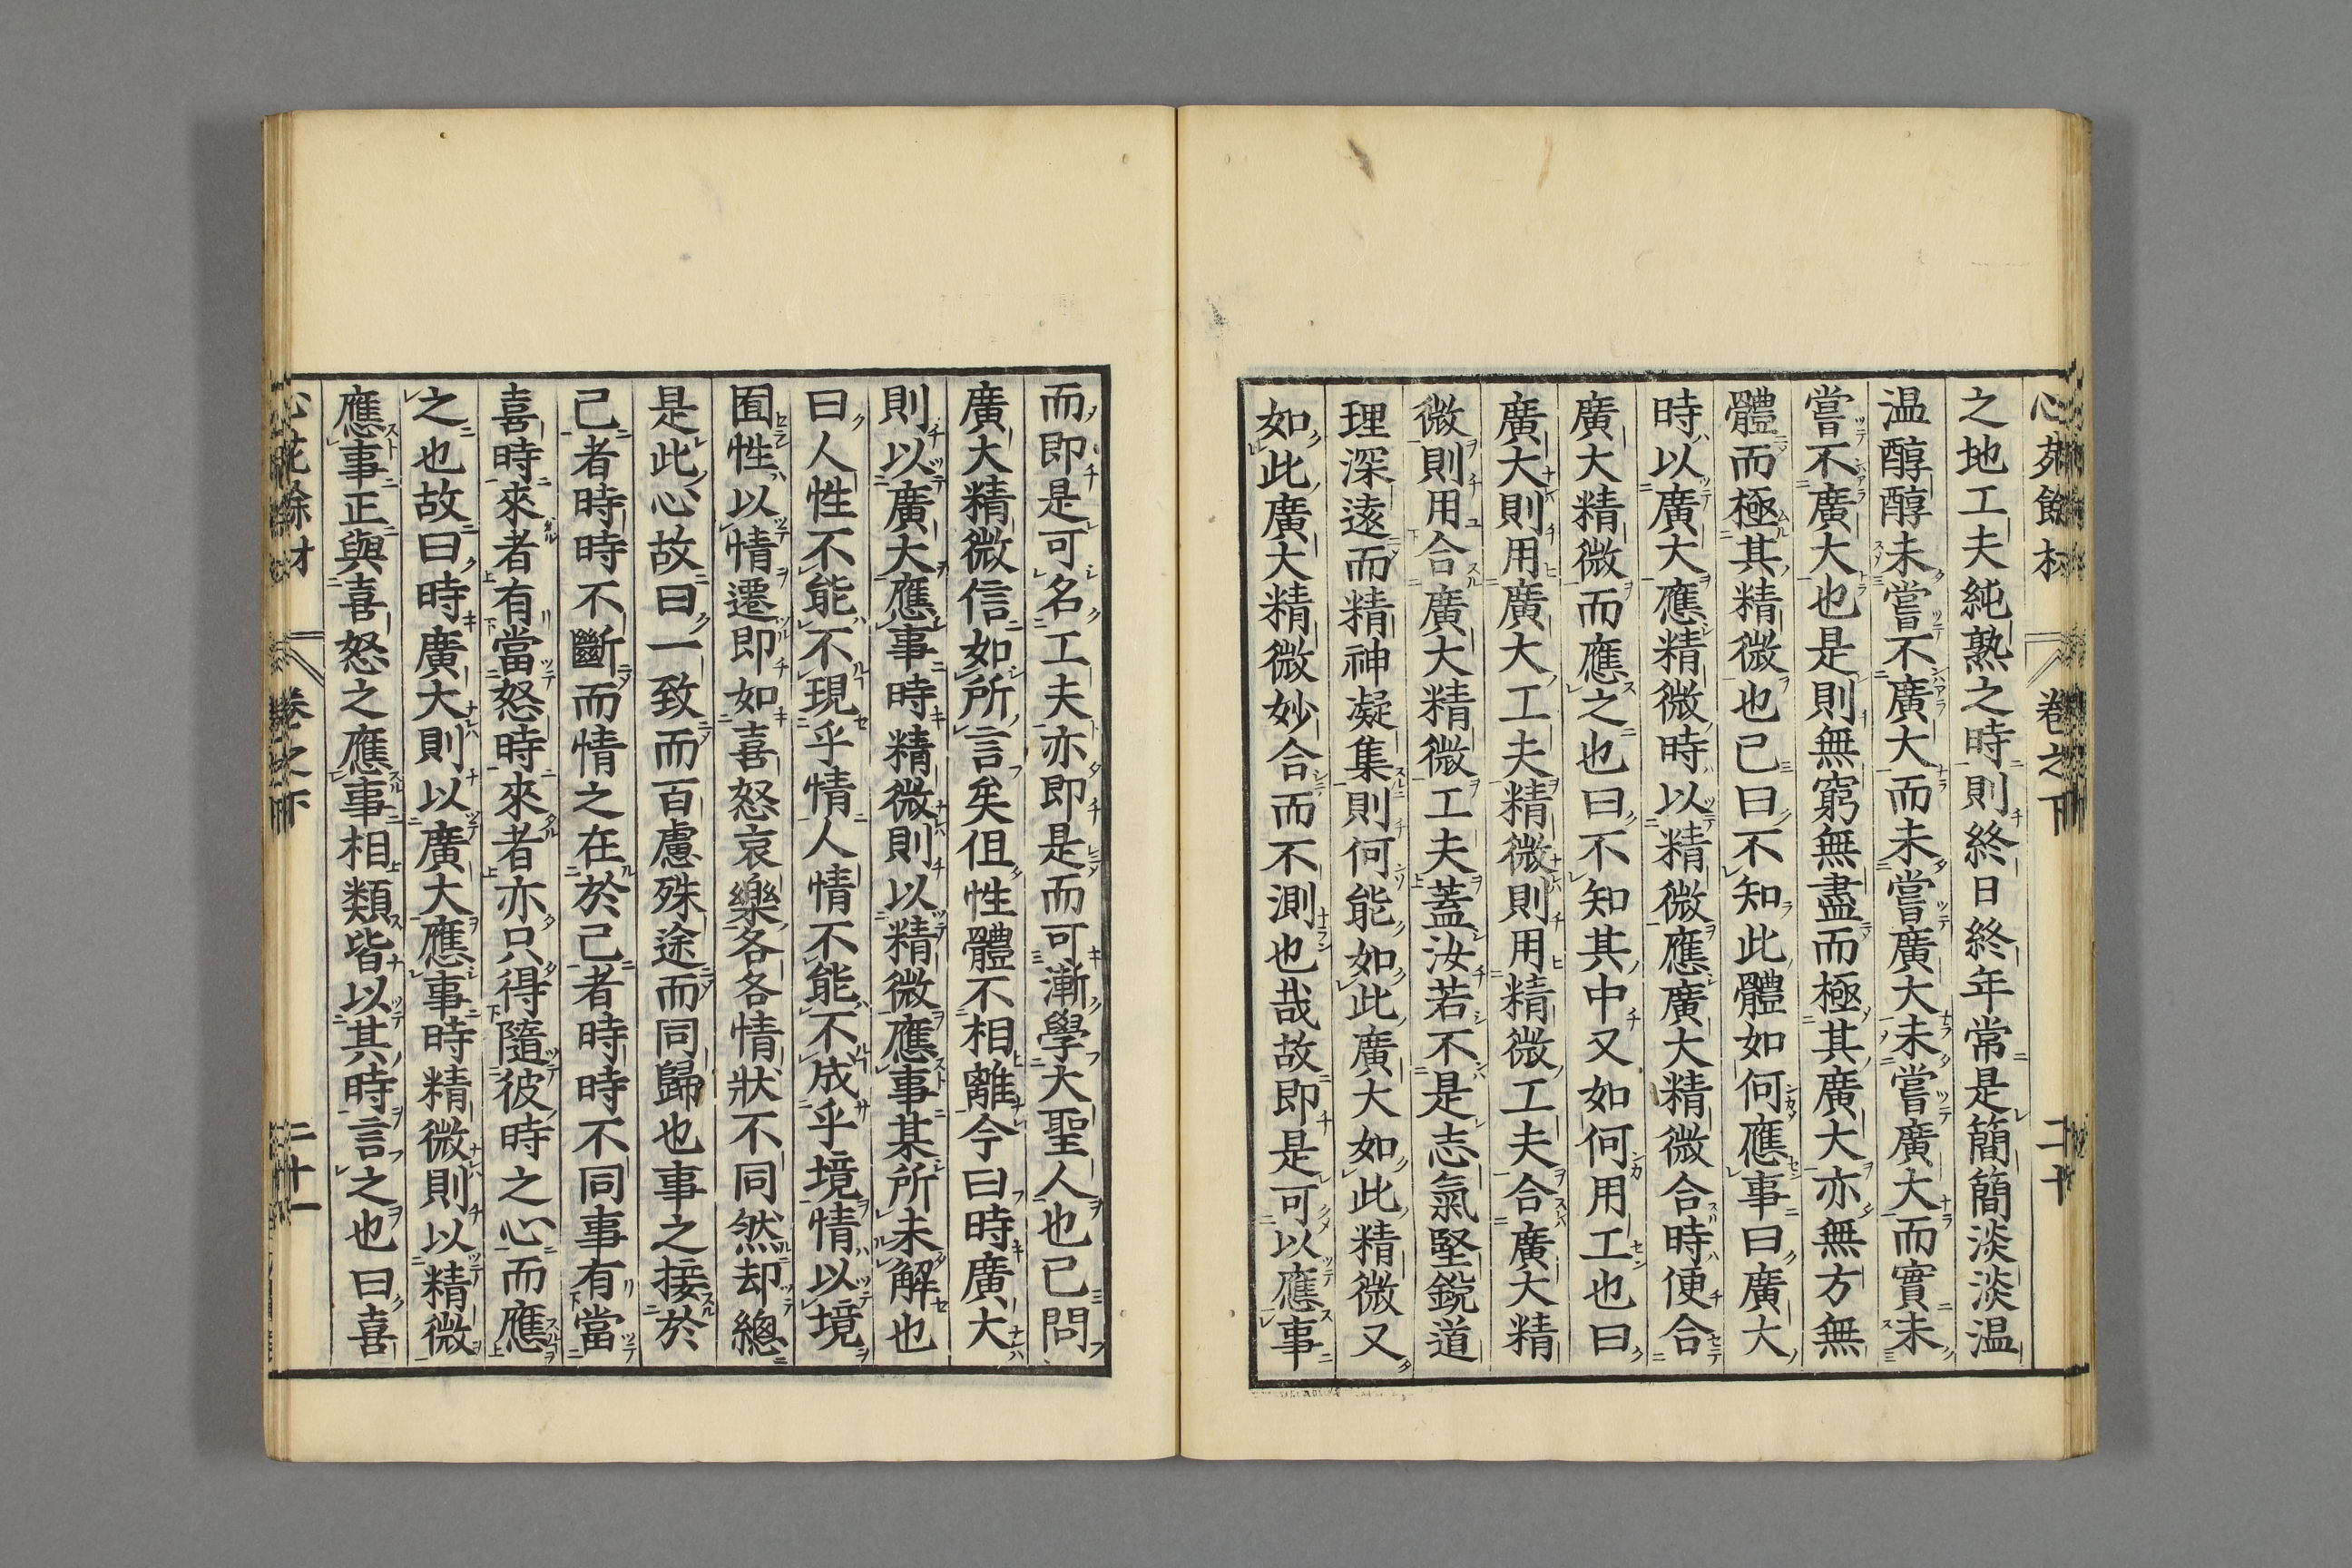 之地工夫純熟之時則終日終年常是簡簡淡淡温
温醇醇未嘗不廣大而未嘗廣大未嘗廣大而實未
嘗不廣大也是則無窮無盡而極其廣大亦無方無
體而極其精微也已曰不知此體如何應事曰廣大
時以廣大應精微時以精微應廣大精微合時便合
廣大精微而應之也曰不知其中又如何用工也曰
廣大則用廣大工夫精微則用精微工夫合廣大精
微則用合廣大精微工夫蓋汝若不是志氣堅鋭道
理深遠而精神凝集則何能如此廣大如此精微又
如此廣大精微妙合而不測也哉故即是可以應事
而即是可名工夫亦即是而可漸學大聖人也已問
廣大精微信如所言矣但性體不相離今曰時廣大
則以廣大應事時精微則以精微應事某所未解也
曰人性不能不現乎情人情不能不成乎境情以境
囿性以情遷即如喜怒哀樂各各情狀不同然却總
是此心故曰一致而百慮殊途而同歸也事之接於
己者時時不斷而情之在於己者時時不同事有當
喜時來者有當怒時來者亦只得隨彼時之心而應
之也故曰時廣大則以廣大應事時精微則以精微
應事正與喜怒之應事相類皆以其時言之也曰喜
卷之下
二十
卷之下
二十一